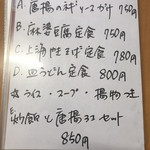 A. 唐揚のネギソースかけ 750円
B. 麻婆豆腐定食 750円
C. 上海焼そば定食 780円
D. 皿うどん定食 800円
☆ライス・スープ・揚物付
E. 炒飯と唐揚ヨコセット
850円